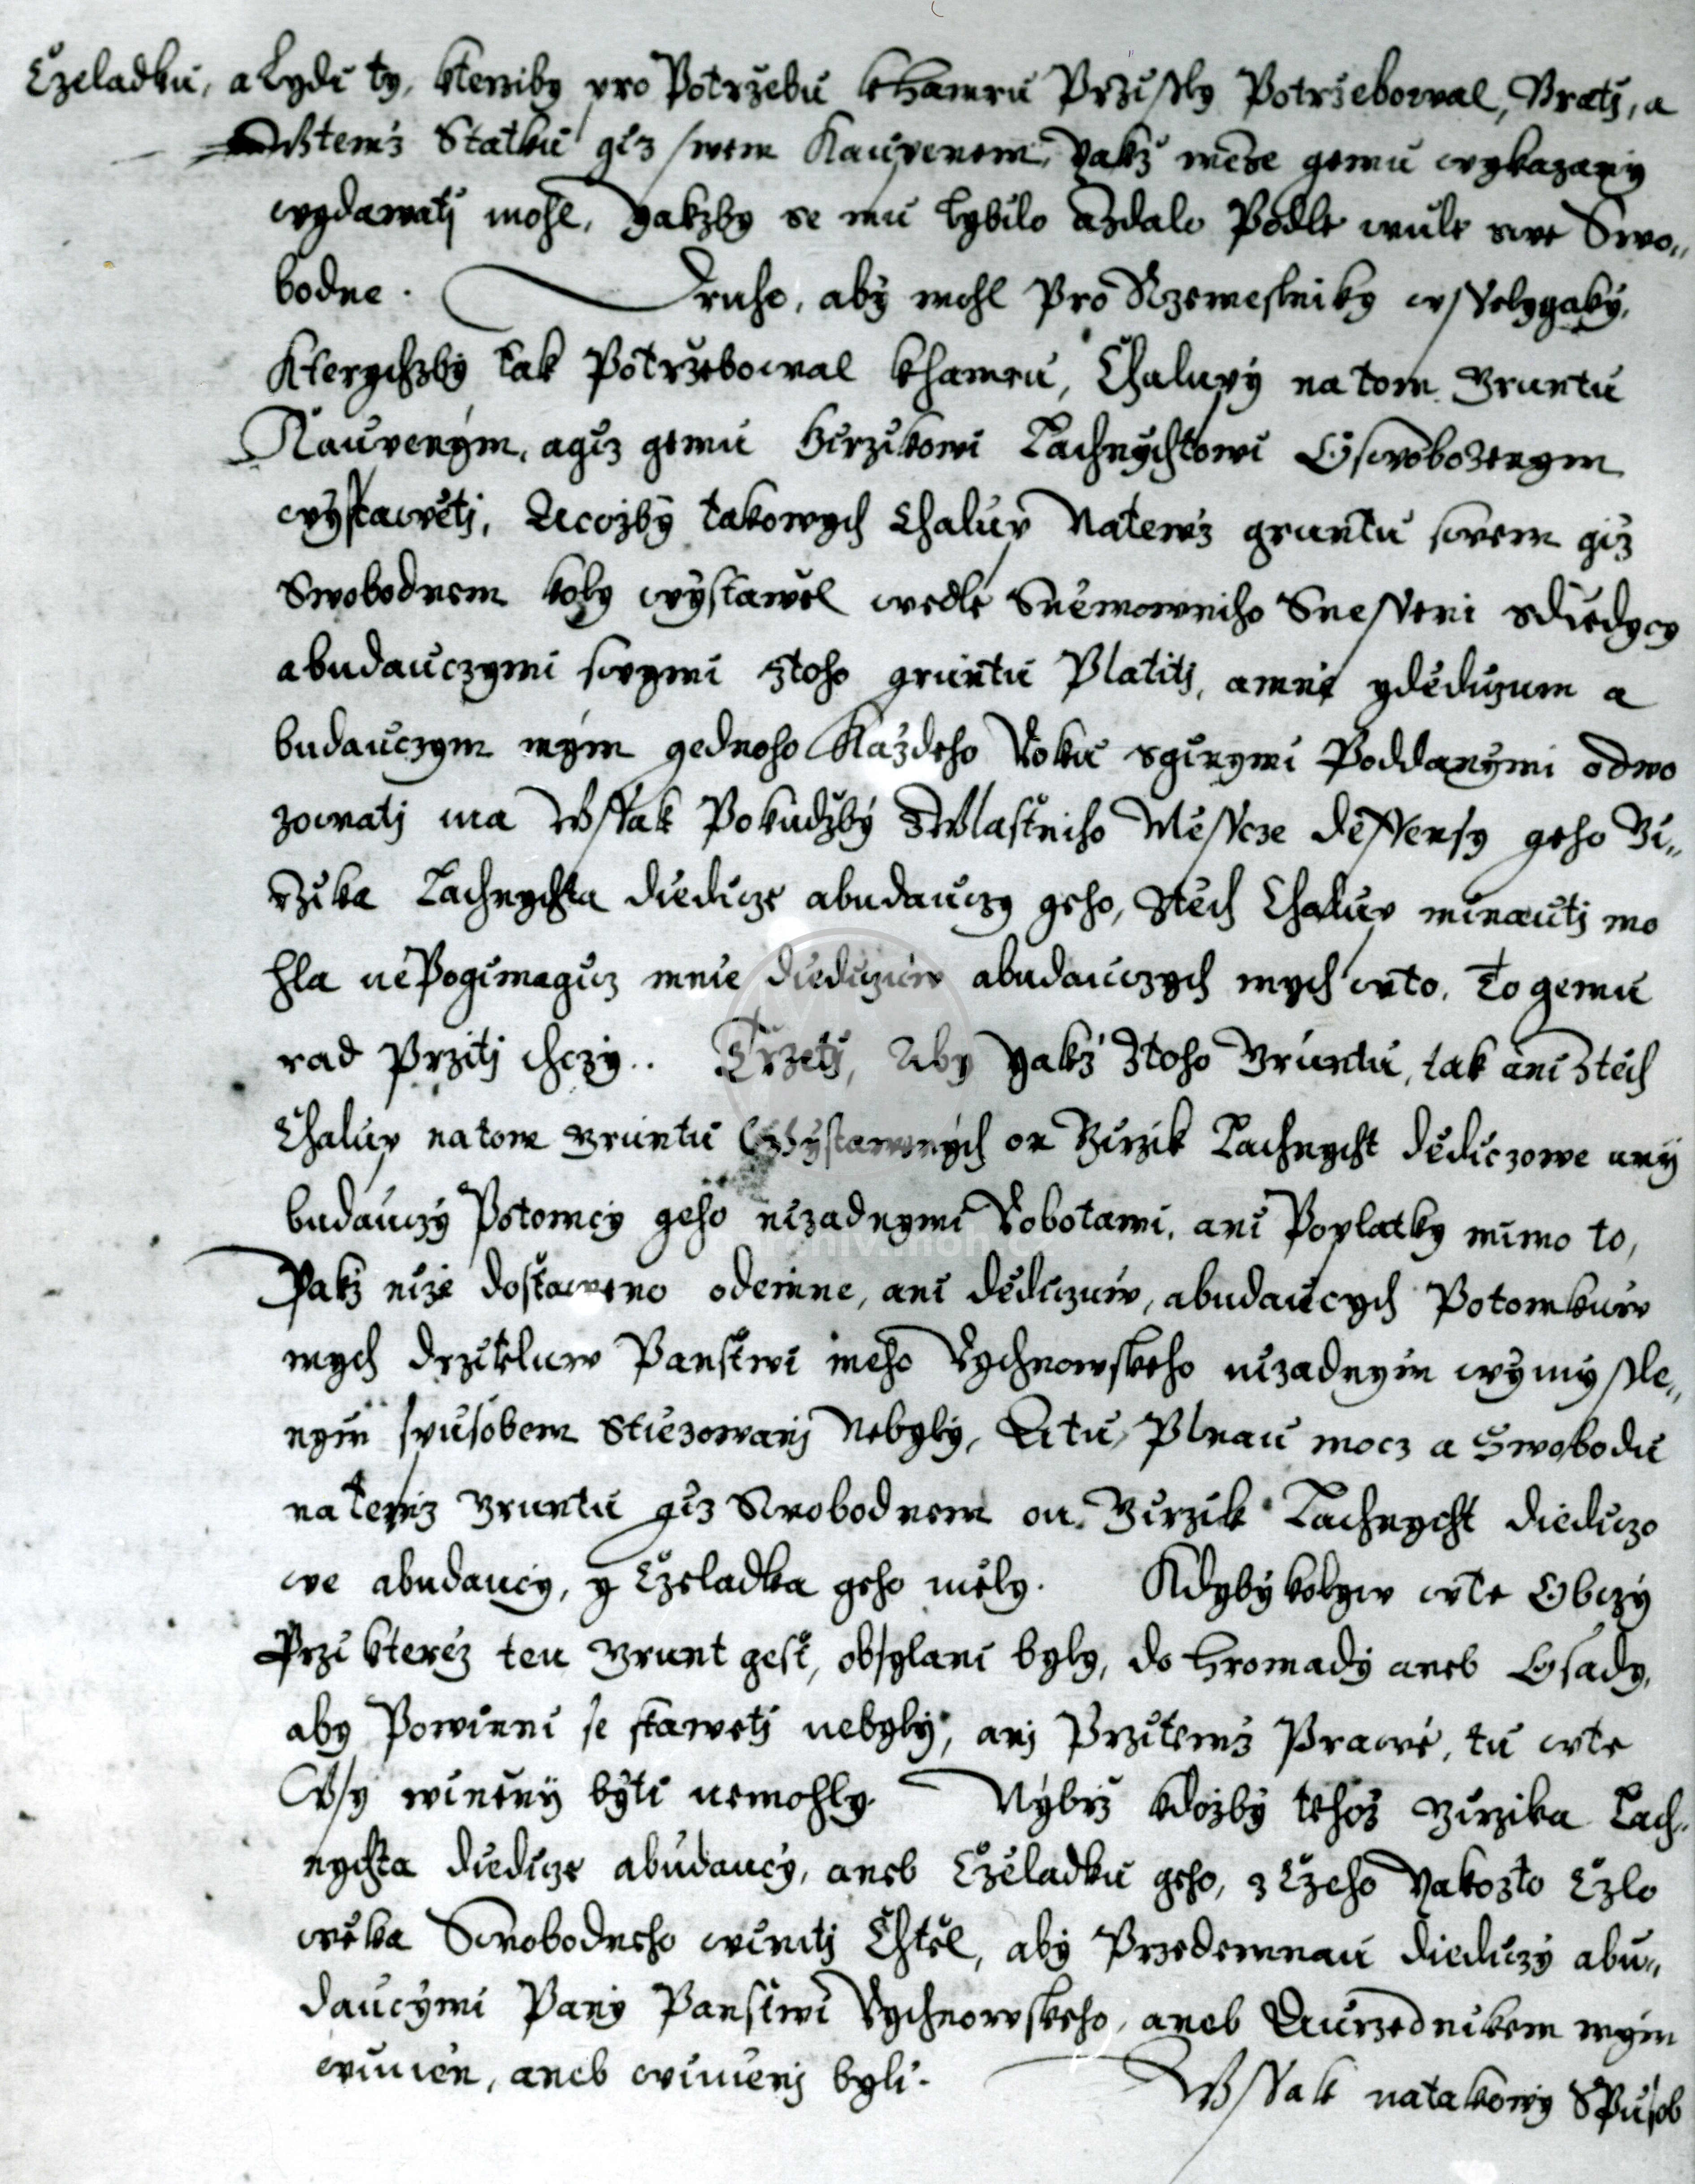 Czeladku, a Lydi ty, kterziby pro Potrzebu k Hamru Przissly Potrzebowal, Bratj, a
Stemż Statku giz swem Kaupenem, Yakż mèze gemu wykazaný
wydawatj mohl, Yakzby se mu lybilo azdalo Podle wule swe Swo„
bodne. Druhe, aby mohl Pro Rzemeslniky wsselygaký,
Kterychzby tak Potrzebowal khamru, Chalupý na tom Gruntu
Kaupeným, agiz gemu Girzikowi Lachnychtowi Oswobozenym
wystawětj, Acozby takowych Chalup Natemż gruntu swem giż
Swobodnem koby wystawěl wedle Sněmowniho Snesseni sdiedycy
abudauczymi swymi Ztoho gruntu Platitj, amně ydědiczum a
budauczym mým gednoho Každeho Roku sginymi Poddanými odwo
zowatj ma Wssak Pokudžby Zwlastniho Měsscze děssensy geho Gi„
rzika Lachnychta diedicze abudauczy geho, Stěch Chalup minautj mo
hla nePogimagicz mnie diediczuw abudauczych mych wto, to gemu
rad Przitj chczy.. Trzetj, Aby Yakż Ztoho Gruntu, tak ani Ztěch
Chalup na tom gruntu Wystawených on Girzik Lachnycht dědiczowe aný
budauczý Potomcy geho nizadnymi Robotami, ani Poplatky mimo to,
Yakż niże dostaweno odemne, ani dědiczuw, abudaucych Potomkuw
mych drziteluw Panstwi meho Rychnowskeho nizadnym wymyssle„
nym spusobem Stiezowanj Nebyly, Atu Plnau mocz a Swobodu
na temż Gruntu giż Swobodnem on Girzik Lachnycht diediczo
we abudaucy, y Czeladka geho měly. Kdyby kolyw wte Obczý
Przi kteréż ten Grunt gest, obsylani byly, do Hromadý aneb Osadý,
aby Powinni se stawetj nebylý, anj Przitemż Prawé, tu wte
Wsy winený býti nemohly. Nýbrż kdożbý tehoż Girzika Lach„
nychta diedicze abudaucý, aneb Czeladku geho, z Czeho Yakożto Czlo
wěka Swobodneho winitj Chtěl, abý Przedemnau diediczý abu„
daucými Pany Panstwi Rychnowskeho, aneb Aurzednikem mým
winien, aneb winienj byli. Wssak natakowý Spusob